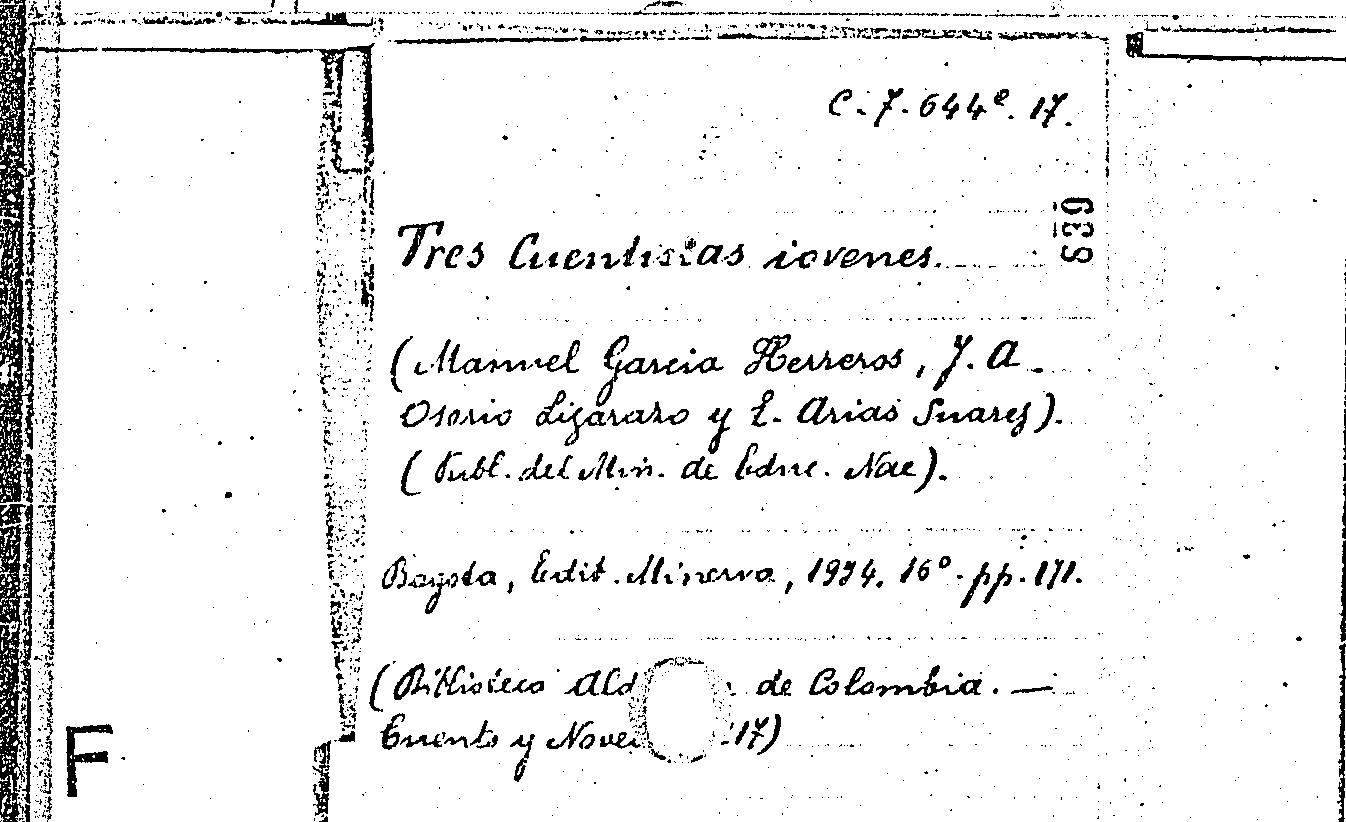 C. 7. 644º. 17.
639
Tres Cuentistas jovenes.
(Manuel Garcia Herreros, J. A.
Osorio Lizarazo y E. Arias Suarez).
(Publ. del Min. de Educ. Nac).
Bogota, Edit. Minerva, 1934. 16º. pp. 171.
(Biblioteca Ald de Colombia. —
Cuento y Nove 17)
F